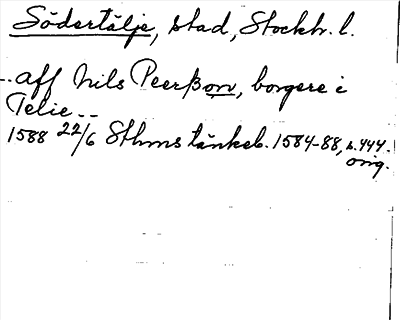 Södertälje, stad, Stockh. l.
.. aff Nils Peerßon, borgere i
Telie --
1588 22/6 Sthms tänkeb. 1584-88, s. 444.
orig.